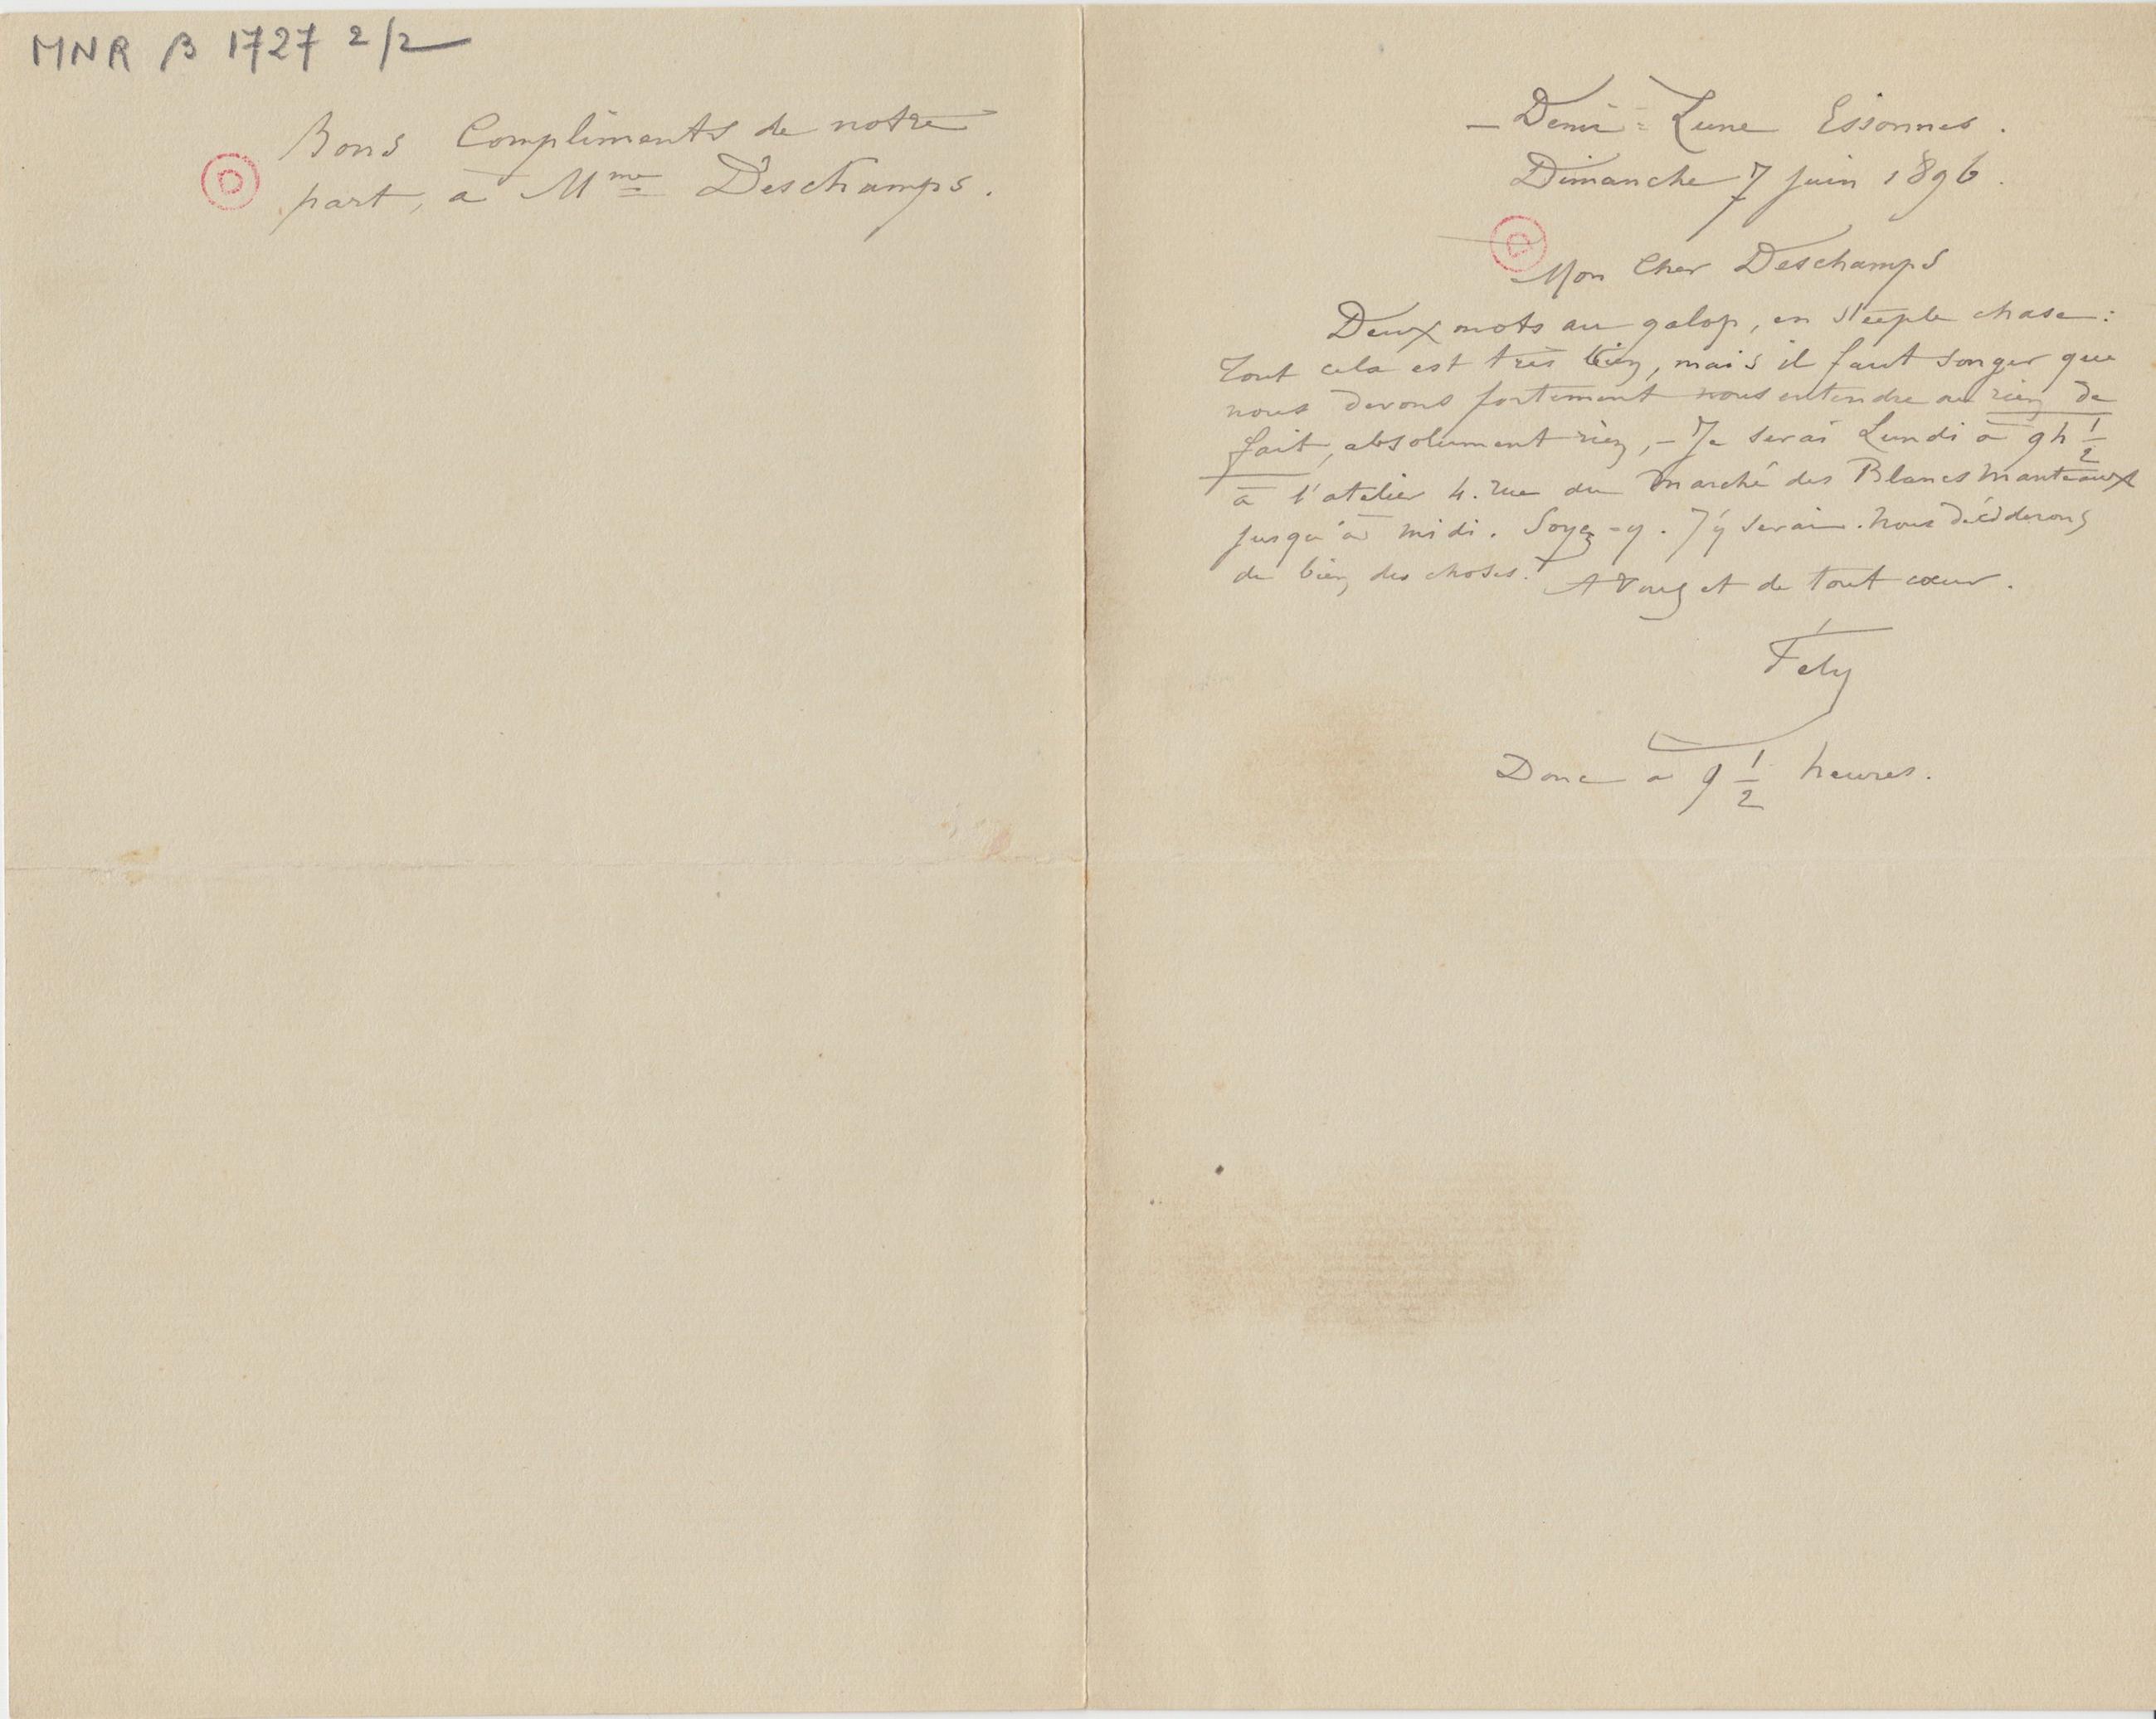 MNR β 1727 2/2
Bons Compliments de notre
part, à Mme Deschamps.
– Demi=Lune Essonnes.
Dimanche 7 juin 1896.
Mon Cher Deschamps
Deux mots au galop, en steeple chase:
Tout cela est très bien, mais il faut songer que
nous devons fortement nous entendre ou rien de
fait, absolument rien, – Je serai Lundi à 9h 1/2
à l'atelier 4. rue du Marché des Blancs Manteaux
jusqu'à midi. Soyez-y. J'y serai. Nous déciderons
de bien des choses. A Vous et de tout cœur.
Fély
Donc à 9 1/2 heures.